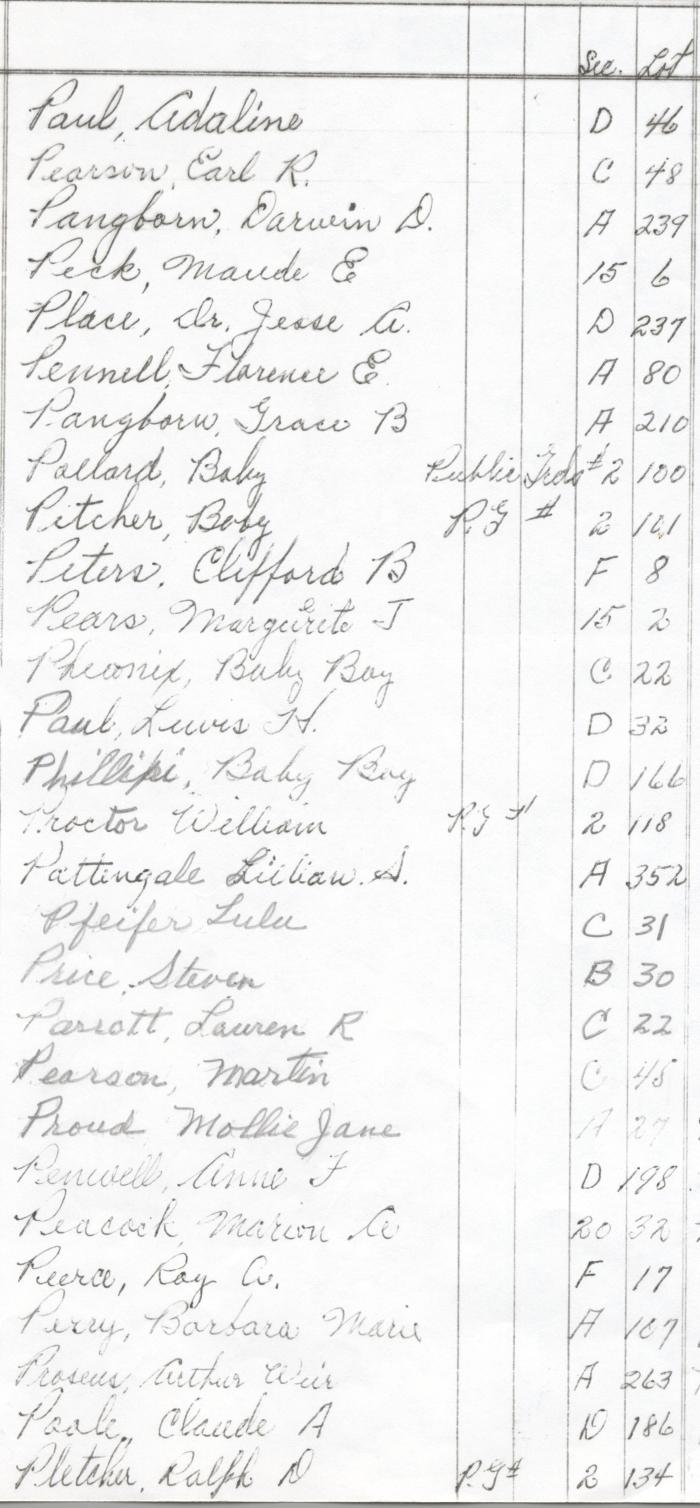 Sec. Lot
Paul, Adaline D 46
Pearson, Earl R. C 48
Pangborn, Darwin D. A 239
Peck, Maude E 15 6
Place, Dr. Jesse A. D 237
Pennell, Florence E. A 80
Pangborn, Grace B A 210
Pollard, Baby Public Grds # 2 100
Pitcher, Baby P.G # 2 101
Peters, Clifford B F 8
Pears, Margurite J 15 2
Pheonix, Baby Boy C 22
Paul, Lewis H. D 32
Phillipi, Baby Boy D 166
Proctor William P.G # 2 118
Pattengale Lillian. S. A 352
Pfeifer Lulu C 31
Price, Steven B 30
Parrott, Lauren R C 22
Pearson, Martin C 45
Proud Mollie Jane A 27
Penwell, Anne F D 198
Peacock, Marion A 20 32
Peerce, Roy A. F 17
Perry, Barbara Marie A 107
Proseus, Arthur Weir A 263
Poole, Claude A D 186
Pletcher, Ralph D P.G # 2 134